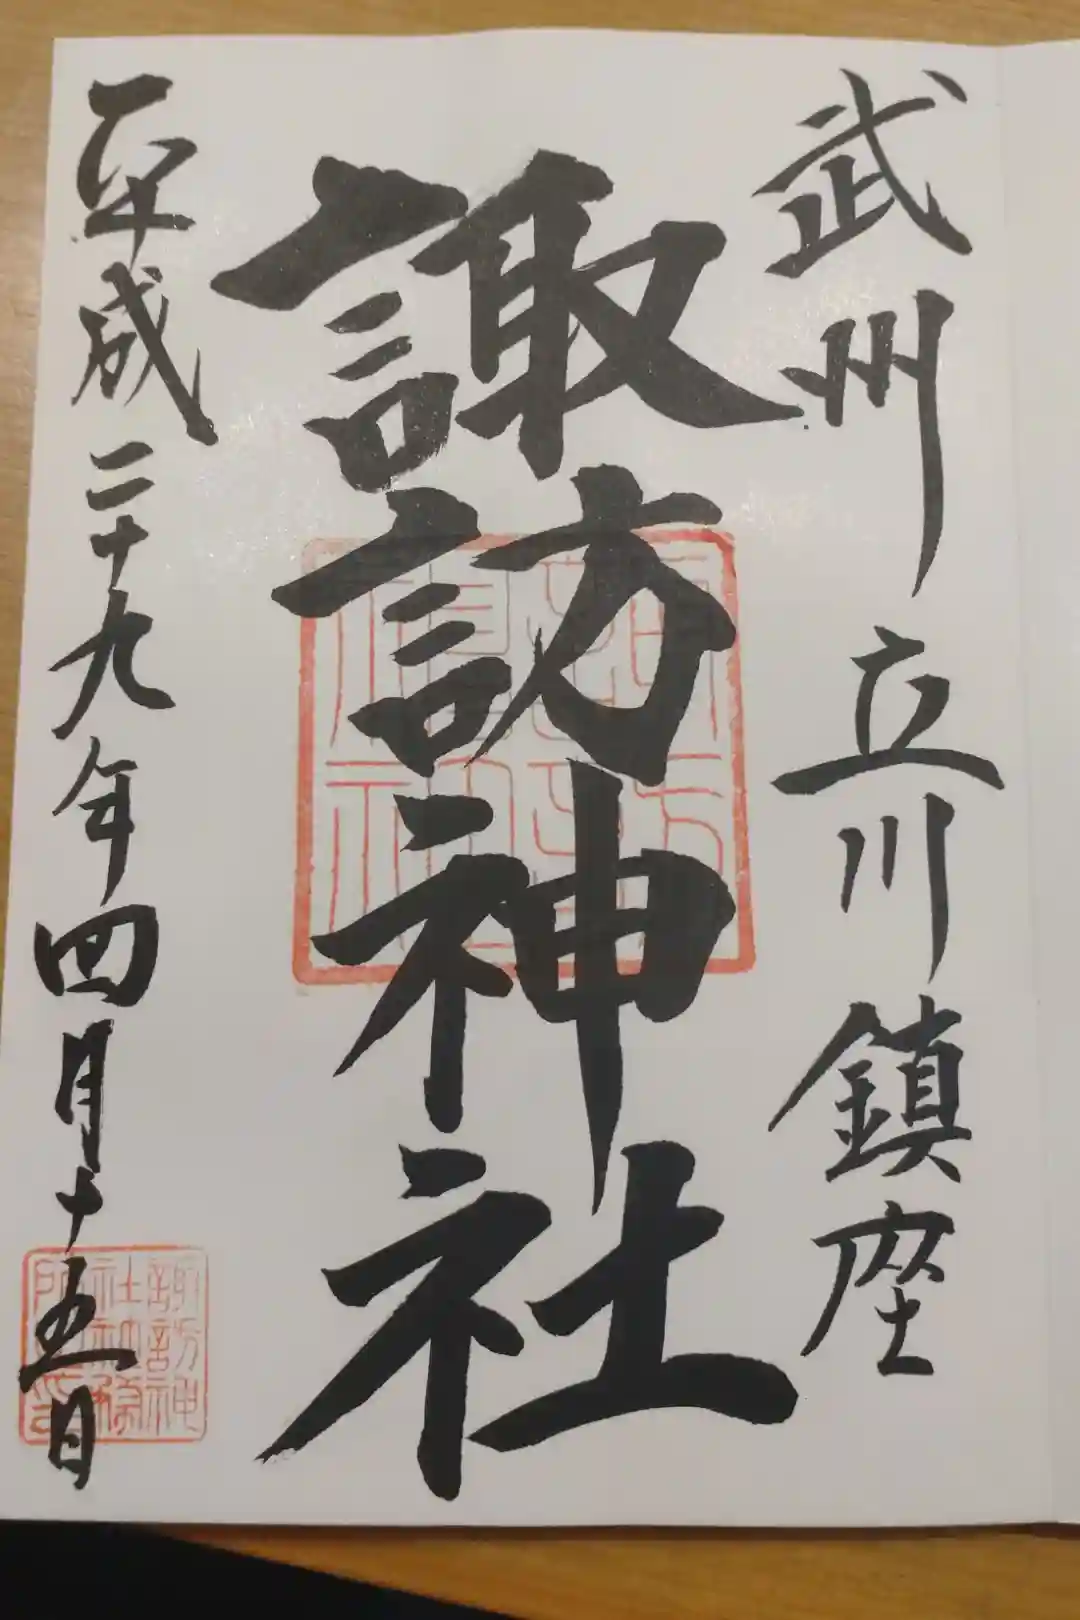 武州立川鎮座
諏訪神社
平成二十九年四月十五日
諏訪神
社社務
所之印